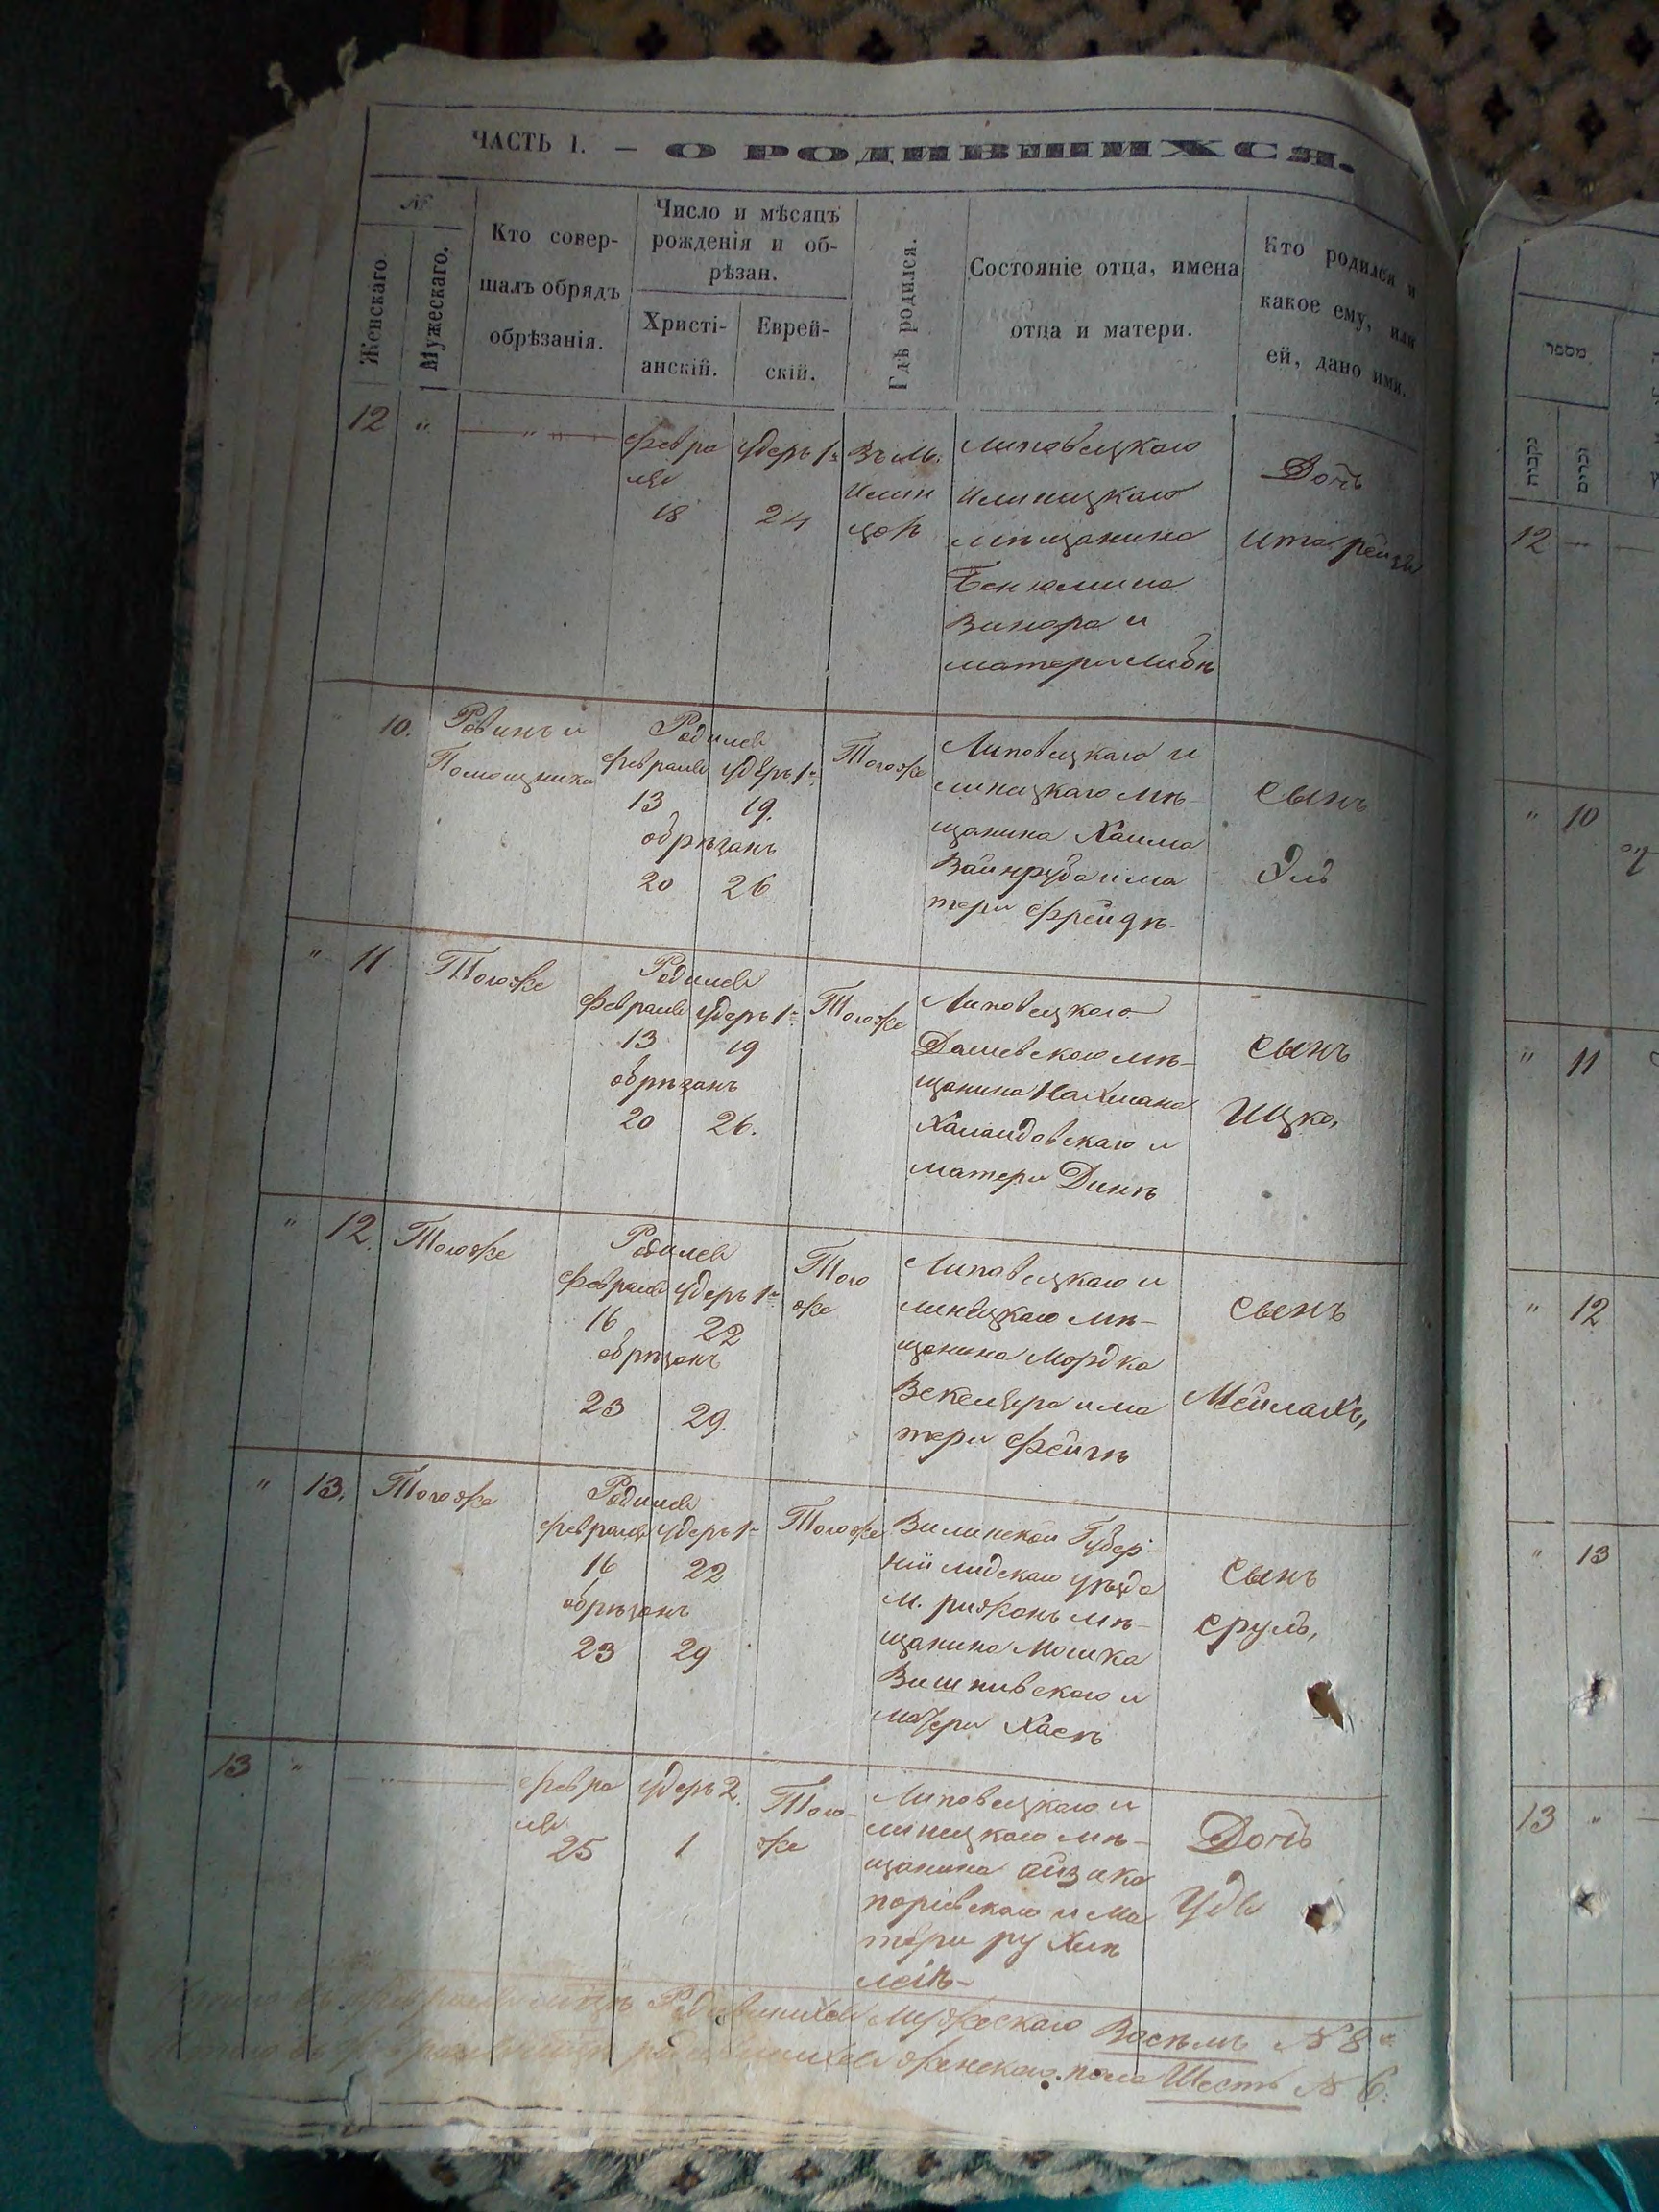 ЧАСТЬ I. — О РОДИВШИХСЯ.
№
Женскаго.
Мужескаго.
Кто совер-
шалъ обрядъ
обрѣзанія.
Число и мѣсяцъ
рожденія и об-
рѣзан.
Христі-
анскій.
Еврей-
скій.
Гдѣ родился.
Состояніе отца, имена
отца и матери.
Кто родился и
какое ему, или
ей, дано имя.
12 " — " —
февра
ля
18
Удеръ 1й
24
Въ М.
Илин
цах
Липовецкаго
Илинецкаго
мѣщанина
Бенюмина
Винора и
матери Либѣ
Дочь
Ита Рейзя
" 10.
Равинъ и
Помощники
Родился
февраля Удеръ 1й
13 19.
обрѣзанъ
20 26
Тогоже
Липовецкаго и
линецкаго мѣ-
щанина Хаима
Вайнруба и ма
тери Фрейдѣ
Сынъ
Эль
" 11
Тогоже
Родился
февраля Удеръ 1й
13 19
обрѣзанъ
20 26.
Тогоже
Липовецкого
Дашевскаго мѣ-
щанина Нахмана
и
матери Динѣ
Сынъ
Ицко,
" 12.
Тогоже
Родился
февраля Удеръ 1й
16 22
обрѣзанъ
23 29.
Того
же
Липовецкаго и
линецкаго мѣ-
щанина Мордка
Векслера и ма
тери Фейгѣ
Сынъ
Мейлахъ,
" 13.
Тогоже
Родился
февраля Удеръ 1й
16 22
обрѣзанъ
23 29
Тогоже
Виленской Губер-
ніи лидскаго уѣзда
м. мѣ-
щанина Мошка
Вишнивскаго и
матери Хаѣ
Сынъ
Сруль,
13 " "
февра
ля
25
Удеръ 2.
1
Того-
же
Липовецкаго и
линецкаго мѣ-
щанина Айзика
поріевскаго и ма
тери рухли
леиѣ-
Дочь
Удя
Итого въ февралѣ мѣсяцѣ Родившихся мужескаго Восѣмъ № 8.
Итого въ февралѣ мѣсяцѣ родившихся женскаго пола Шесть № 6.
מספר
נקבות
זכרים
12 —
" 10
" 11
" 12
" 13
13 "